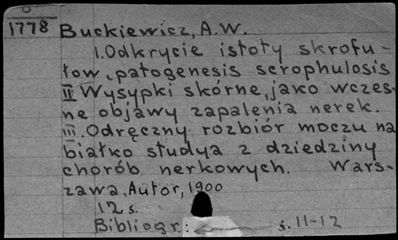 1778
Buckiewicz, A.W.
I. Odkrycie istoty skrofu-
łow, patogenesis scrophulosis
II Wysypki skórne, jako wczes-
ne objawy zapalenia nerek.
III. Odręczny rozbiór moczu na
białko studya z dziedziny
chorób nerkowych. Wars-
zawa. Autor, 1900
12 s.
Bibliogr.: s. 11-12